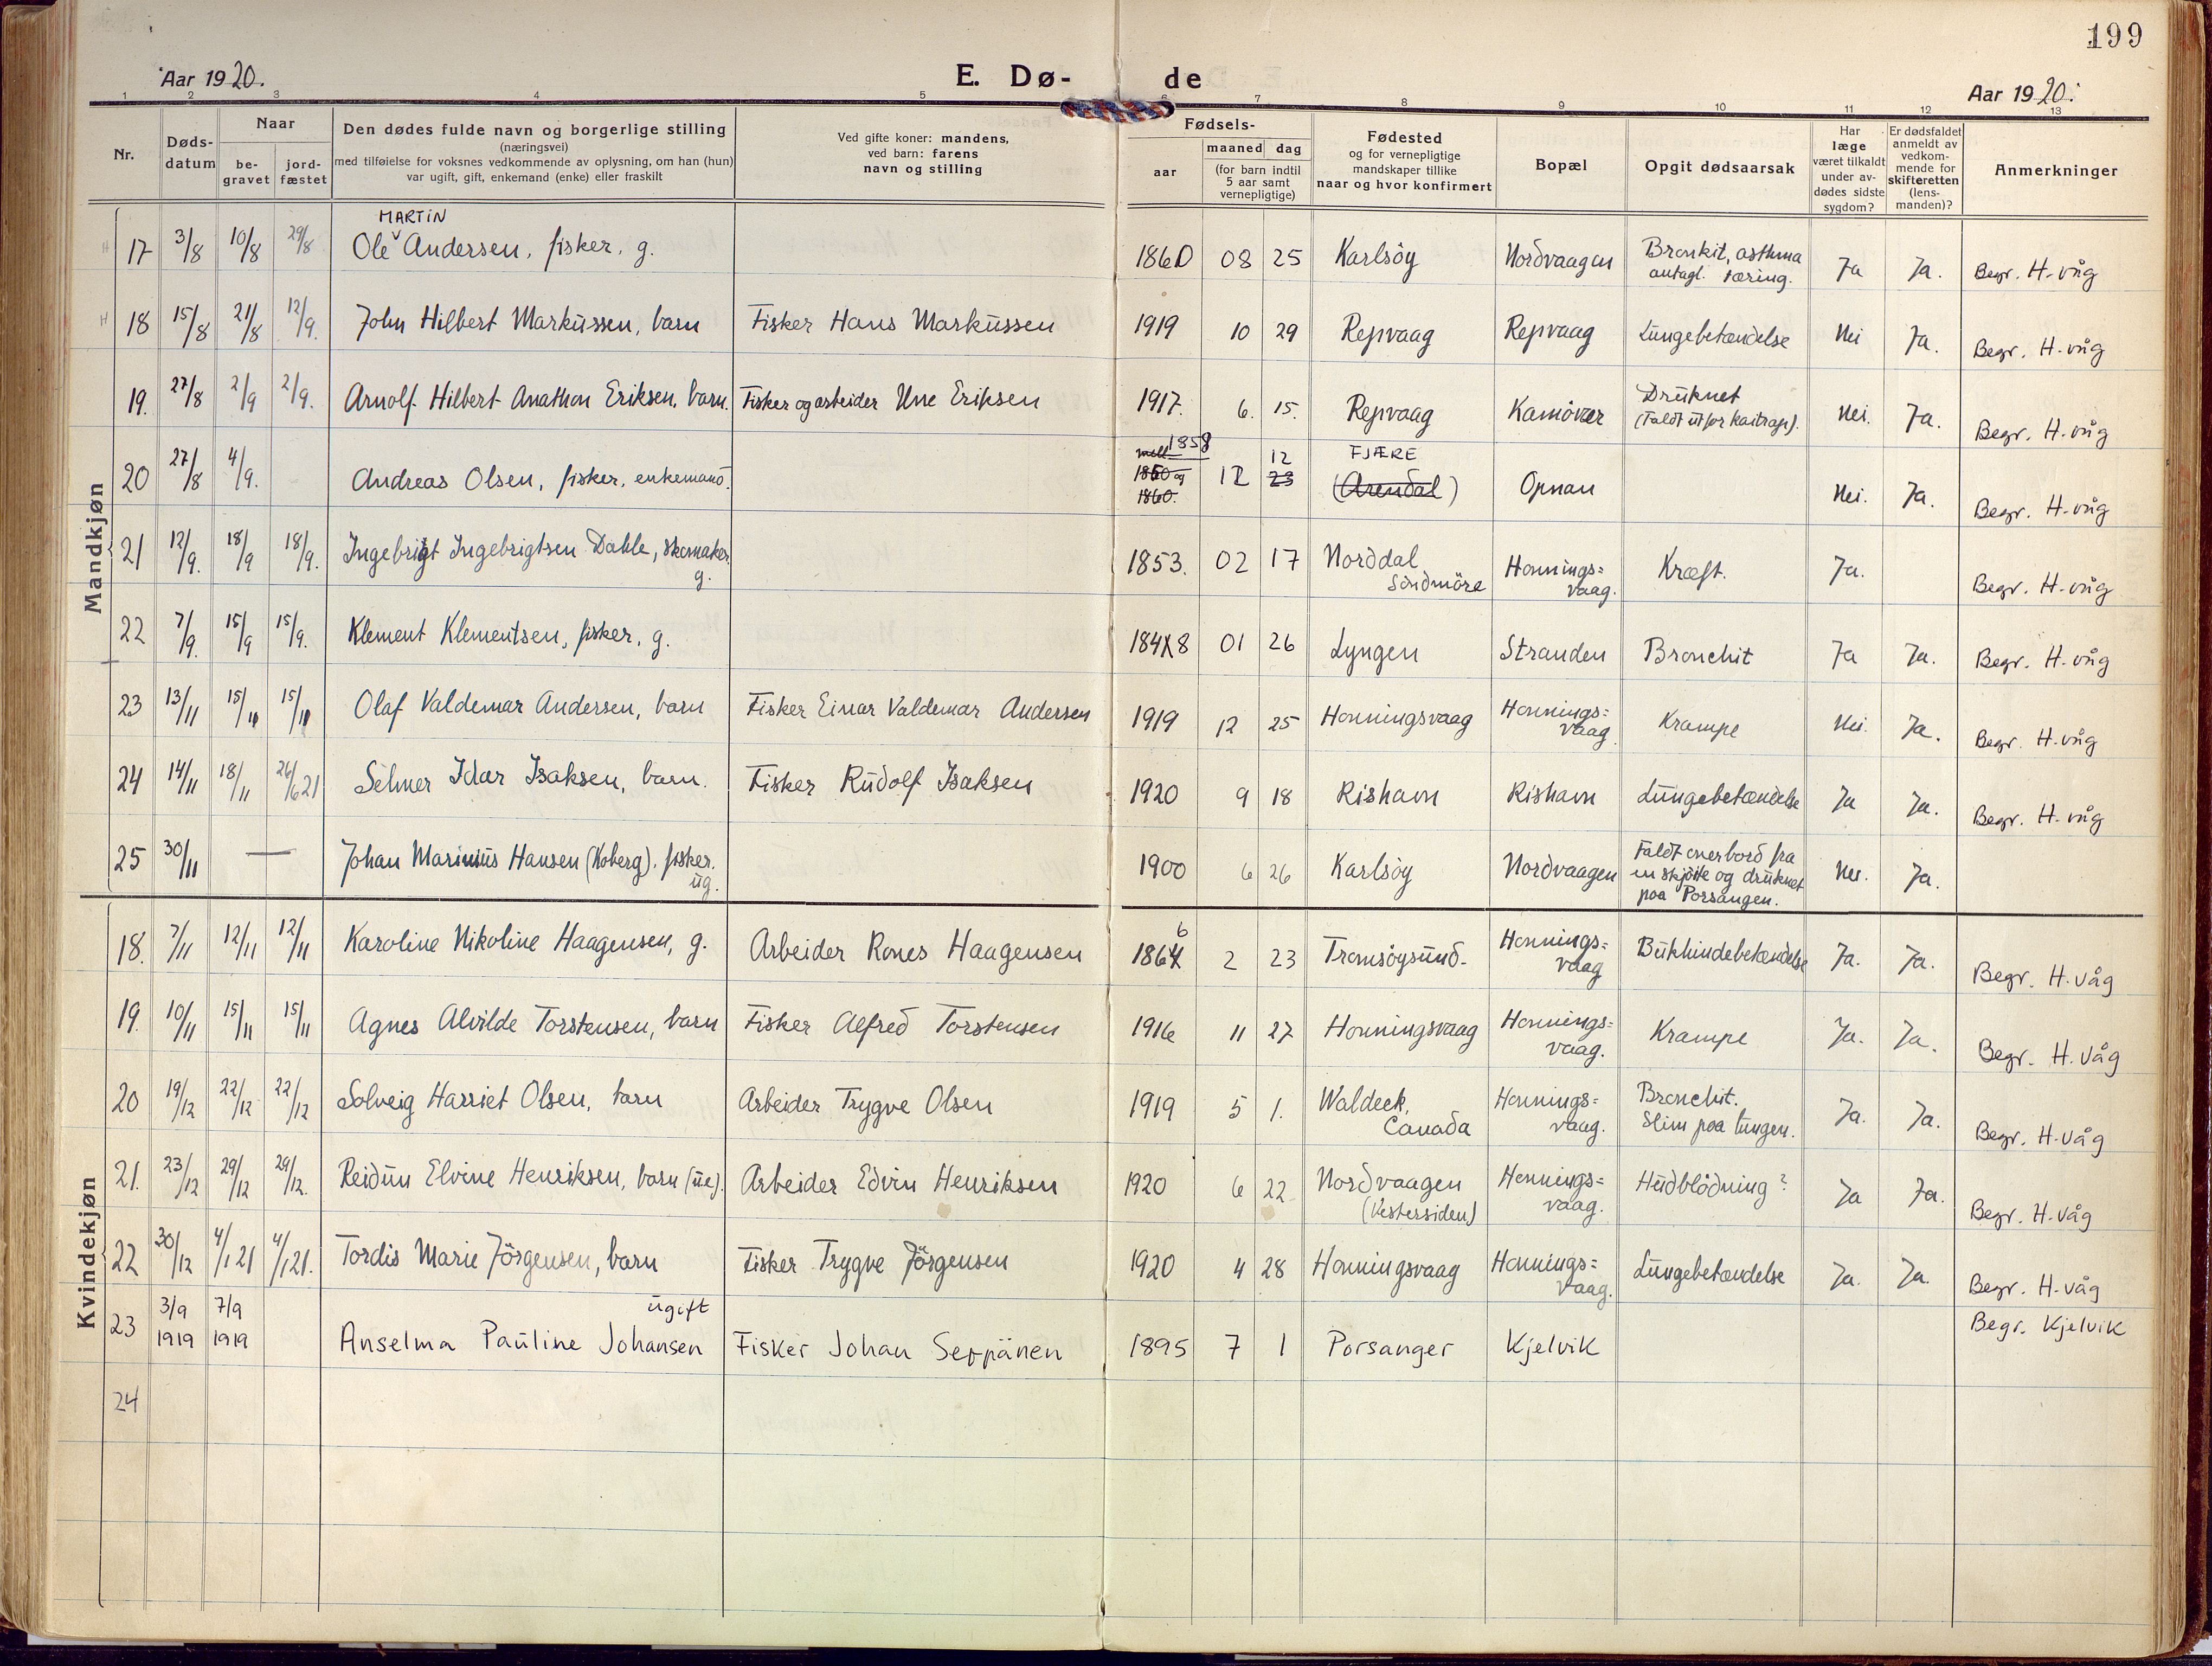 199
Aar 1920.
E. Dø- de
Aar 1920.
1 2 3 4 5 6 7 8 9 10 11 12 13
Nr.
Døds-
datum
Naar
be-
gravet
jord-
fæstet
Den dødes fulde navn og borgerlige stilling
(næringsvei)
med tilføielse for voksnes vedkommende av oplysning, om han (hun)
var ugift, gift, enkemand (enke) eller fraskilt
Ved gifte koner: mandens,
ved barn: farens
navn og stilling
Fødsels-
aar
maaned dag
(for barn indtil
5 aar samt
vernepligtige)
Fødested
og for vernepligtige
mandskaper tillike
naar og hvor konfirmert
Bopæl
Opgit dødsaarsak
Har
læge
været tilkaldt
under av-
dødes sidste
sygdom?
Er dødsfaldet
anmeldt av
vedkom-
mende for
skifteretten
(lens-
manden)?
Anmerkninger
Mandkjøn
MARTIN
17 3/8 10/8 29/8 Ole Andersen, fisker, g. 1860 08 25 Karlsöy Nordvaagen Bronkit, asthma
antagl. tæring. Ja Ja. Begr. H-våg
18 15/8 21/8 12/9. John Hilbert Markussen, barn Fisker Hans Markussen 1919 10 29 Repvaag Repvaag Lungebetændelse Nei Ja. Begr. H-våg
19. 27/8 2/9 2/9. Arnolf Hilbert Anathon Eriksen, barn. Fisker og arbeider Une Eriksen 1917. 6. 15. Repvaag Kamöver Druknet
(Faldt utfor kaitrap). Nei. Ja. Begr. H-våg
mell 1858
20 27/8 4/9. Andreas Olsen, fisker, enkemand. 1850 og
1860. 12 12 23 FJÆRE
(Arendal) Opnan Nei. Ja. Begr. H-våg
21 12/9. 18/9 18/9. Ingebrigt Ingebrigtsen Dahle, skomaker,
g. 1853. 02 17 Norddal
Söndmöre Honnings=
vaag. Kræft. Ja. Begr. H-våg
22 7/9. 15/9 15/9. Klement Klementsen, fisker, g. 1848 01 26 Lyngen Stranden Bronchit Ja Ja. Begr. H-våg
23 13/11 15/11 15/11 Olaf Valdemar Andersen, barn Fisker Einar Valdemar Andersen 1919 12 25 Honningsvaag Honnings=
vaag Krampe Nei. Ja. Begr. H-våg
24 14/11 18/11 26/6 21 Selmer Idar Isaksen, barn. Fisker Rudolf Isaksen 1920 9 18 Rishavn Rishavn Lungebetændelse Ja Ja. Begr. H-våg
25 30/11 — Johan Marinius Hansen (Koberg), fisker.
ug. 1900 6 26 Karlsöy Nordvaagen Faldt overbord fra
en skjöite og druknet
paa Porsangen. Nei. Ja.
Kvindekjøn
18. 7/11 12/11 12/11 Karoline Nikoline Haagensen, g. Arbeider Rones Haagensen 1864 6 2 23 Tromsöysund. Honnings=
vaag Bukhindebetændelse Ja. Ja. Begr. H.våg
19. 10/11 15/11 15/11 Agnes Alvilde Torstensen, barn Fisker Alfred Torstensen 1916 11 27 Honningsvaag Honnings=
vaag. Krampe Ja. Ja. Begr. H.våg
20 19/12 22/12 22/12 Solveig Harriet Olsen, barn Arbeider Trygve Olsen 1919 5 1. Waldeck,
Canada Honnings=
vaag. Bronchit.
Slim paa lungen. Ja. Ja. Begr. H-våg
21. 23/12 29/12 29/12. Reidun Elvine Henriksen, barn (ue). Arbeider Edvin Henriksen 1920 6 22 Nordvaagen
(Vestersiden) Honnings=
vaag. Hudblödning? Ja Ja. Begr. H-våg
22 30/12 4/1 21 4/1 21. Tordis Marie Jörgensen, barn Fisker Trygve Jörgensen 1920 4 28 Honningsvaag Honnings=
vaag. Lungebetændelse Ja. Ja. Begr. H-våg
23 3/9
1919 7/9
1919 ugift
Anselma Pauline Johansen Fisker Johan Seppänen 1895 7 1 Porsanger Kjelvik Begr. Kjelvik
24